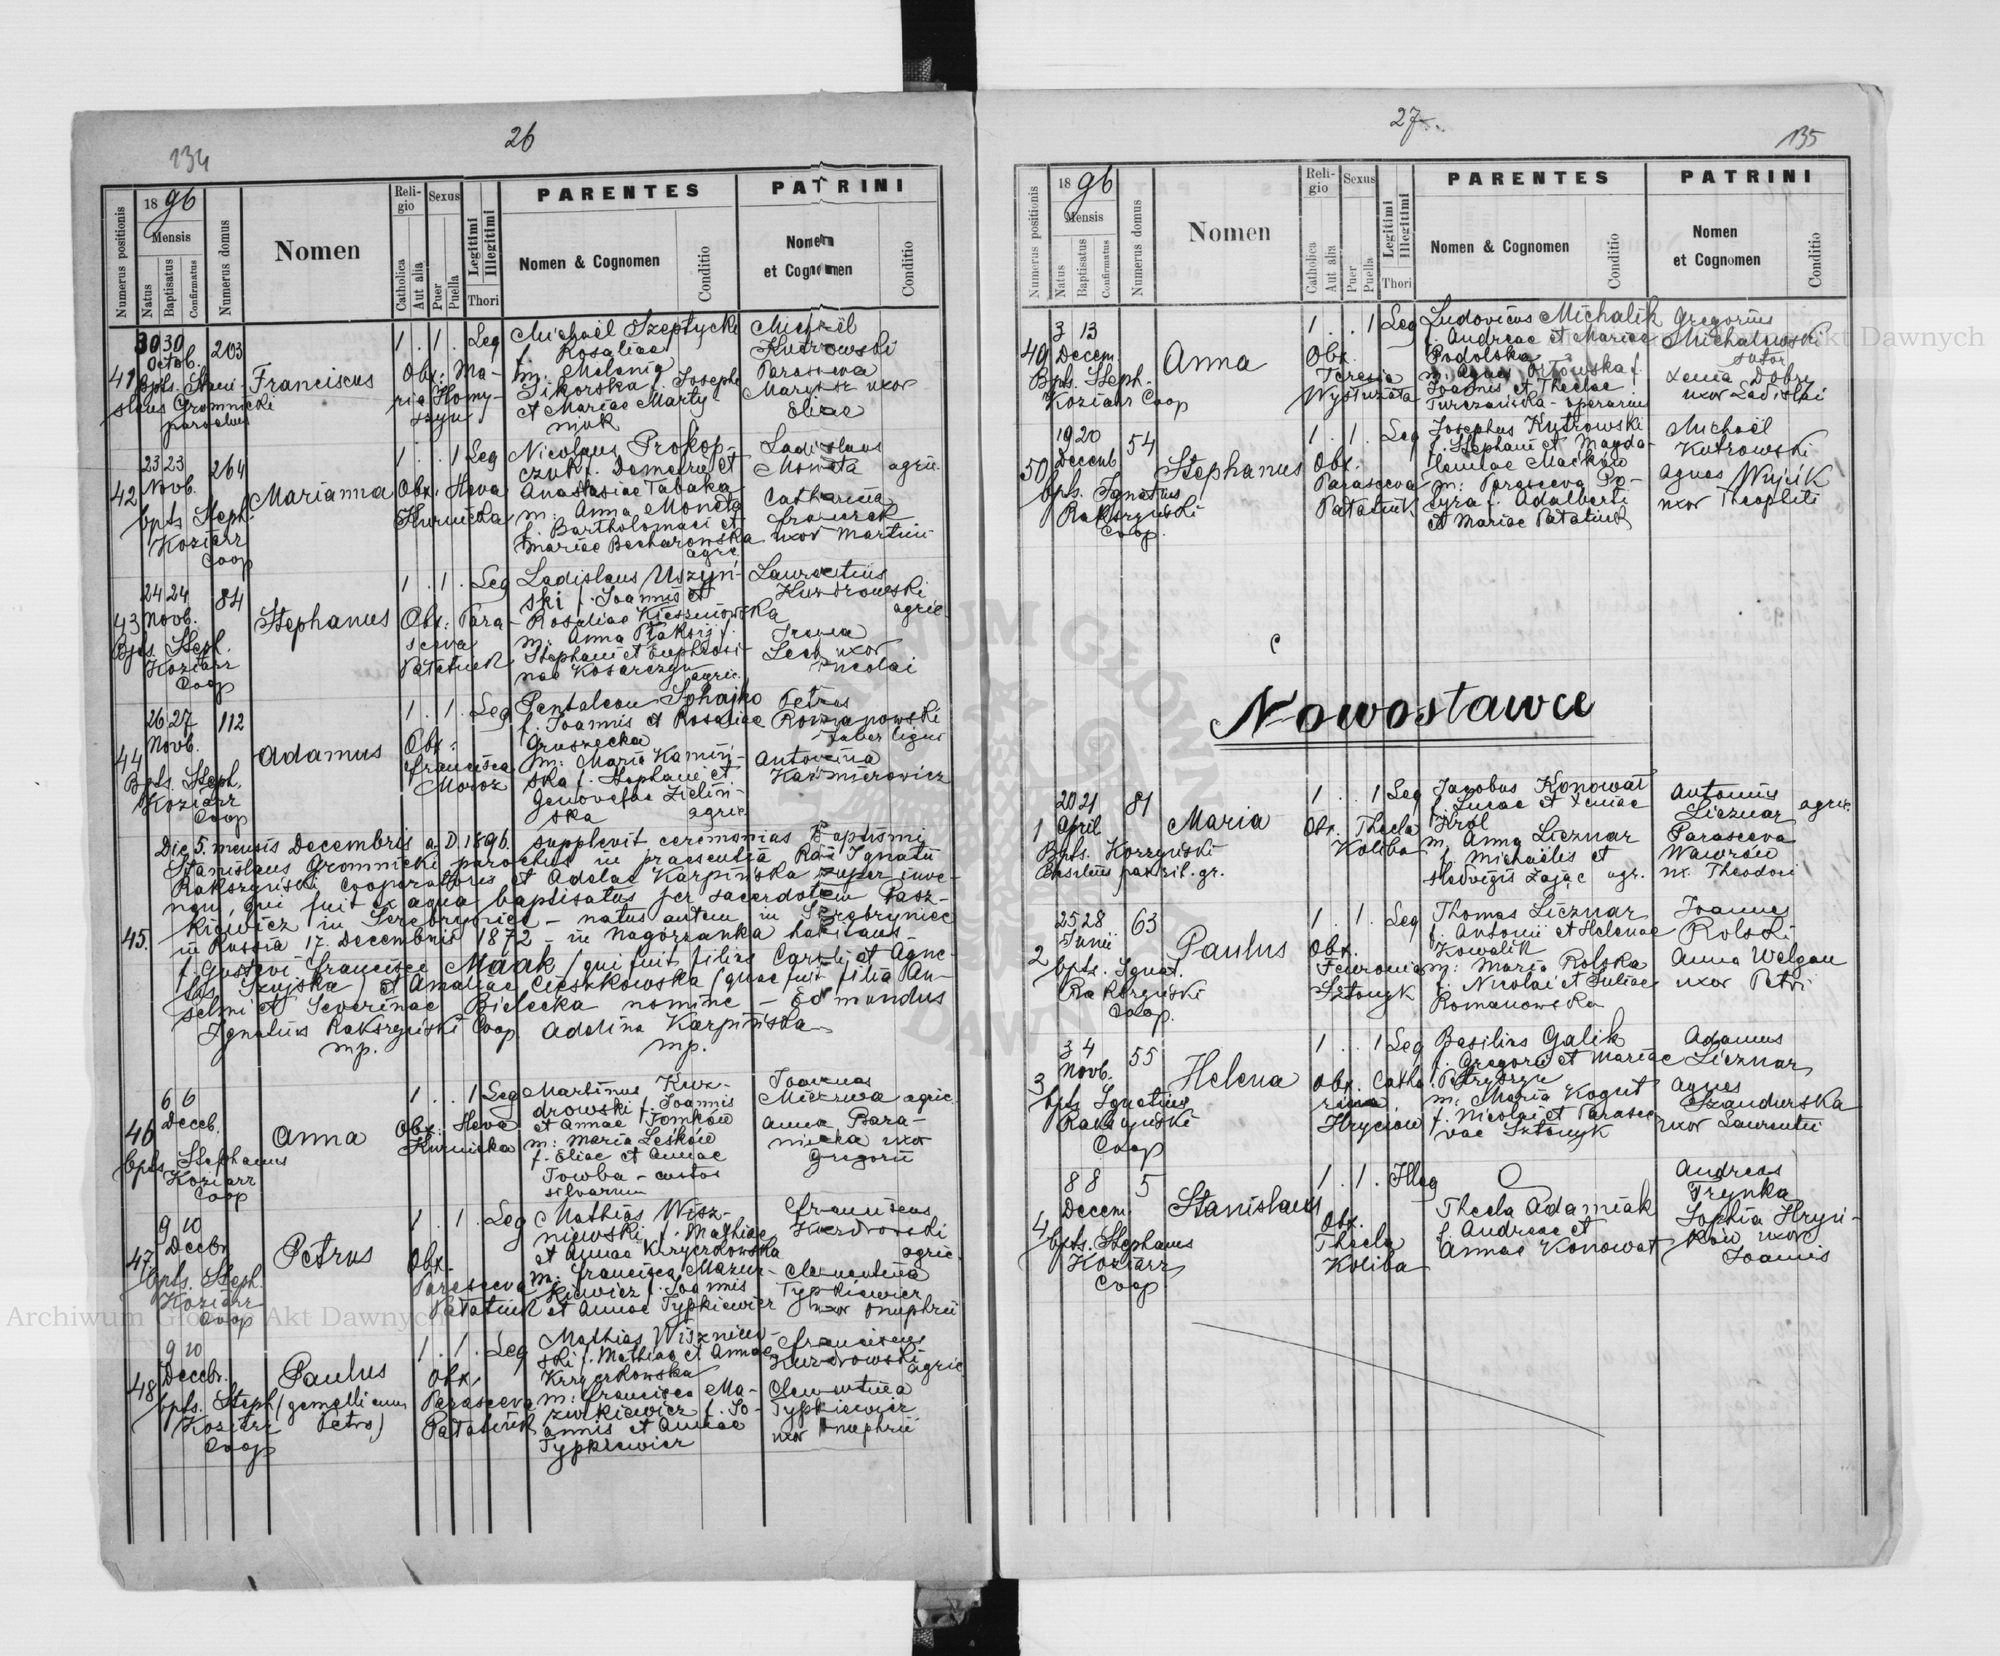 134
26
Numerus positionis
18 96
Mensis
Natus
Baptisatus
Confirmatus
Numerus domus
Nomen
Religio
Catholica
Aut alia
Sexus
Puer
Puella
Legitimi
Illegitimi
Thori
PARENTES
Nomen & Cognomen
Conditio
PATRINI
Nomen
et Cognomen
Conditio
41
30 30
Octob.
203
Bpts. Stani-
slaus Gromnicki
parochus
Franciscus
1 . 1 . Leg
Obx: Ma-
ria
Michaël Szeptycki
f. Rosaliae
m: Melania
Sikorska f. Josephi
et Mariae Marty
niuk
Michaël
Kudrowski
Parasceva
uxor
Eliae
42
23 23
Novb.
264
bpts Steph.
Koziarz
Coop
Marianna
1 . . 1 Leg
Obx. Heva
Kurnicka
Nicolaus Prokop-
czuk f. Demetrii et
Anastasiae Tabaka
m: Anna Moneta
f. Bartholomaei et
Mariae Bacharowska
agric.
Ladislaus
Moneta agric.
Catharina
Franczak
uxor Martini
43
24 24
Novb.
84
Bpts. Steph.
Koziarz
Coop
Stephanus
1 . 1 . Leg
Obx: Para-
sceva
Pataniuk
Ladislaus Uszyń-
ski f. Joannis et
Rosaliae
m: Anna
Stephani et Euphrosi-
nae Kosarczyn
agric.
Laurentius
Kurdrowski
agric.
uxor
Nicolai
44
26 27
Novb.
112
Bpts. Steph.
Koziarz
Coop
Adamus
1 . 1 . Leg
Obx:
Francisca
Moroz
Pantaleon
f. Joannis et Rosaliae
Gruszecka
m: Maria Kamiń-
ska f. Stephani et
Genovefae Zieliń-
ska agric.
Petrus
Romanowski
faber lignar
Antonina
Kazimierowicz
45.
Die 5. mensis Decembris a. D. 1896. supplevit ceremonias Baptismi
Stanislaus Gromnicki parochus in praesentia Rdi Ignatii
Rakszyński cooperatoris et Adelae Karpińska super juve-
nem, qui fuit ex aqua baptisatus per sacerdotem Pasz-
kiewicz in Serebryniec - natus autem in Srebryniec
in Russia 17. Decembris 1872 - in Nagórzanka habitans -
f. Gustavi Francisci Maak (qui fuit filius Caroli et Agne-
tis Szujska) et Amaliae Cieszkowska (quae fuit filia An-
selmi et Severinae Bielecka nomine - Edmundus
Ignatius Rakszyński Coop. Adelina Karpińska
mp. mp.
46
6 6
Decb.
bpts Stephanus
Koziarz
Coop
Anna
1 . . 1 Leg
Obx: Heva
Kurnicka
Martinus Kur-
drowski f. Joannis
et Annae Tomków
m: Maria Leśków
f. Eliae et Annae
Towba - custos
silvarum
Joannes
agric.
Anna Bara-
nicka uxor
Gregorii
47
9 10
Decbr
bpts. Steph.
Koziarz
Coop
Petrus
1 . 1 . Leg
Obx.
Parasceva
Pataniuk
Mathias Wisz-
niewski f. Mathiae
et Annae Krzyczkowska
m: Francisca Mazur-
kiewicz f. Joannis
et Annae Typkiewicz
Franciscus
Kurdrowski
agric.
Clementina
Typkiewicz
uxor Onuphrii
48
9 10
Decbr.
bpts. Steph
Koziarz
Coop
Paulus
(gemellianus
Petro)
1 . 1 . Leg
Obx,
Parasceva
Pataniuk
Mathias Wiszniew-
ski f. Mathiae et Annae
Krzyczkowska
m: Francisca Ma-
zurkiewicz f. Jo-
annis et Annae
Typkiewicz
Franciscus
Kurdrowski
agric
Clementina
Typkiewicz
uxor Onuphrii
27.
135
Numerus positionis
18 96
Mensis
Natus
Baptisatus
Confirmatus
Numerus domus
Nomen
Religio
Catholica
Aut alia
Sexus
Puer
Puella
Legitimi
Illegitimi
Thori
PARENTES
Nomen & Cognomen
Conditio
PATRINI
Nomen
et Cognomen
Conditio
49
3 13
Decem.
Bpts. Steph.
Koziarz Coop
Anna
1 . . 1 Leg
Obx.
Teresia
Ludovicus Michalik
f. Andreae et Mariae
Podolska
m: Agnes Orłowska f.
Joannis et Theclae
Turczańska - operarius
Gregorius
Michałowski
sutor
Xenia
uxor Ladislai
50
19 20
Decemb
54
bpts. Ignatius
Rakszyński
Coop.
Stephanus
1 . 1 . Leg
Obx.
Parasceva
Pataniuk
Josephus Kutrowski
f. Stephani et Magda-
lenae Maćków
m: Parasceva Po-
f. Adalberti
et Mariae Pataniuk
Michaël
Kutrowski
Agnes Wujcik
uxor Theophili
Nowostawce
1
20 21
April
81
Bpts. Korzyński
Basilius par. rit. gr.
Maria
1 . . 1 Leg
Obx. Thecla
Koliba
Jacobus Konował
f. Lucae et Xeniae
Król
m. Anna Licznar
f. Michaëlis et
Hedvigis Zając agr.
Antonius
Licznar agric.
Parasceva
Wawrów
ux. Theodori
2
25 28
Junii
63
bpts. Ignat.
Rakszyński
Coop.
Paulus
1 . 1 . Leg
Obx.
Fevronia
Sztonyk
Thomas Licznar
f. Antonii et Helenae
Kowalik
m: Maria Rolska
f. Nicolai et Juliae
Romanowska
Joannes
Rolski
Anna Welgan
uxor Petri
3
3 4
Novb.
55
bpts Ignatius
Rakszyński
Coop
Helena
1 . . 1 Leg
Obx. Catha-
rina
Hryciów
Basilius Galik
f. Gregorii et Mariae
Petryszyn
m: Maria Kogut
f. Nicolai et Parasce-
vae Sztonyk
Adamus
Licznar
Agnes
Szandurska
uxor Laurentii
4
8 8
Decem.
5
bpts. Stephanus
Koziarz
Coop
Stanislaus
1 . 1 . Illeg
Obx.
Thecla
Koliba
Thecla Adamiak
f. Andreae et
Annae Konował
Andreas
Frynka
Sophia Hryń-
ków uxor
Joannis
Archiwum Główne Akt Dawnych